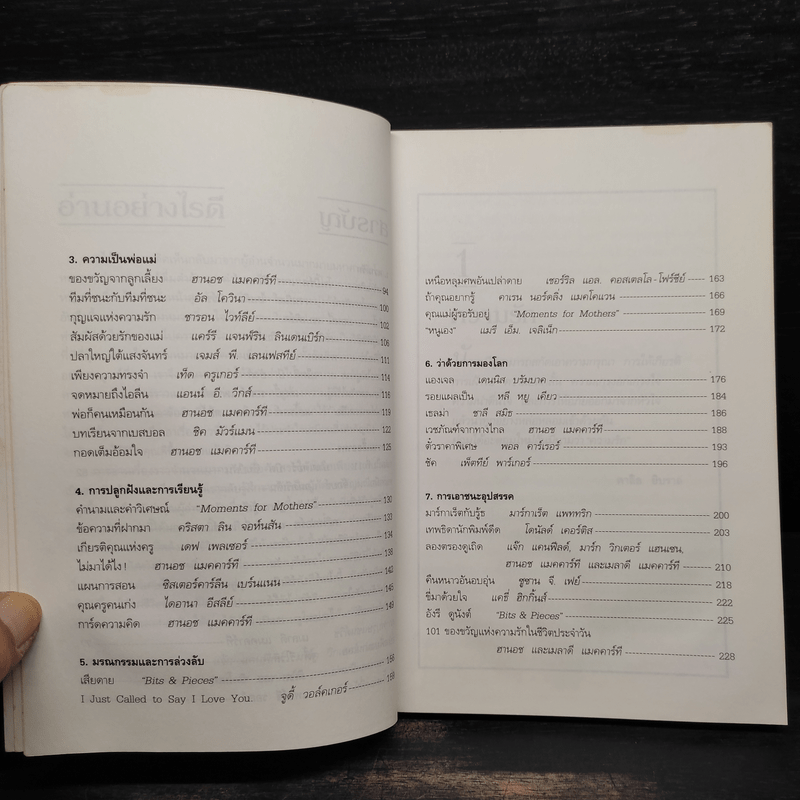 3. ความเป็นพ่อแม่
ของขวัญจากลูกเลี้ยง ฮานอช แมคคาร์ที 94
ทีมที่ชนะกับทีมที่ชนะ อัล โควินา 100
กุญแจแห่งความรัก ชารอน ไวท์ลีย์ 102
สัมผัสด้วยรักของแม่ แคร์รี แจนพ์ริน ลินเดนเบิร์ก 106
ปลาใหญ่ใต้แสงจันทร์ เจมส์ พี. เลนเฟสทีย์ 111
เพียงความทรงจำ เท็ด ครูเกอร์ 114
จดหมายถึงไอลีน แอนน์ อี. วีกส์ 116
พ่อก็คนเหมือนกัน ฮานอช แมคคาร์ที 119
บทเรียนจากเบสบอล ชิค มัวร์แมน 122
กอดเต็มอ้อมใจ ฮานอช แมคคาร์ที 125
4. การปลูกฝังและการเรียนรู้
คำนามและคำวิเศษณ์ "Moments for Mothers" 130
ข้อความที่ฝากมา คริสตา ลิน จอห์นสัน 134
เกียรติคุณแห่งครู เดฟ เพลเซอร์ 136
ไม่มาได้ไง! ฮานอช แมคคาร์ที 139
แผนการสอน ซิสเตอร์คาร์ลีน เบร์นแนน 143
คุณครูคนเก่ง ไดอานา อีสลีย์ 145
การ์ดความคิด ฮานอช แมคคาร์ที 149
5. มรณกรรมและการล่วงลับ
เสียดาย "Bits & Pieces"
I Just Called to Say I Love You. จูดี้ วอล์คเกอร์
เหนือหลุมศพอันเปล่าดาย เชอร์ริล แอล. คอสเตลโล-โฟร์ชีย์ 163
ถ้าคุณอยากรู้ คาเรน นอร์ดลิ่ง แมคโคแวน 166
คุณแม่ผู้รอรับอยู่ "Moments for Mothers" 169
"หนูเอง" แมรี เอ็ม. เจลิเน็ก 172
6. ว่าด้วยการมองโลก
แองเจล เดนนิส บรัมบาค 176
รอยแผลเป็น หลี หยู เคียว 184
เธลม่า ชาลี สมิธ 186
เวชภัณฑ์จากทางไกล ฮานอช แมคคาร์ที 188
ตั๋วราคาพิเศษ พอล คาร์เรอร์ 193
ชิค เพ็ตทีย์ พาร์เกอร์ 196
7. การเอาชนะอุปสรรค
มาร์กาเร็ตกับรู้ธ มาร์กาเร็ต แพททริก 200
เทพธิดานักพิมพ์ดีด โดนัลด์ เคอร์ติส 203
ลองตรองดูเถิด แจ๊ก แคนฟิลด์, มาร์ก วิกเตอร์ แฮนเซน,
ฮานอช แมคคาร์ที และเมลาดี แมคคาร์ที 210
คืนหนาวอันอบอุ่น ซูซาน จี. เฟย์ 218
ขี่มาด้วยใจ แคธี่ ฮิกกิ้นส์ 222
อังรี ดูนังต์ "Bits & Pieces" 225
101 ของขวัญแห่งความรักในชีวิตประจำวัน
ฮานอช และเมลาดี แมคคาร์ที 228